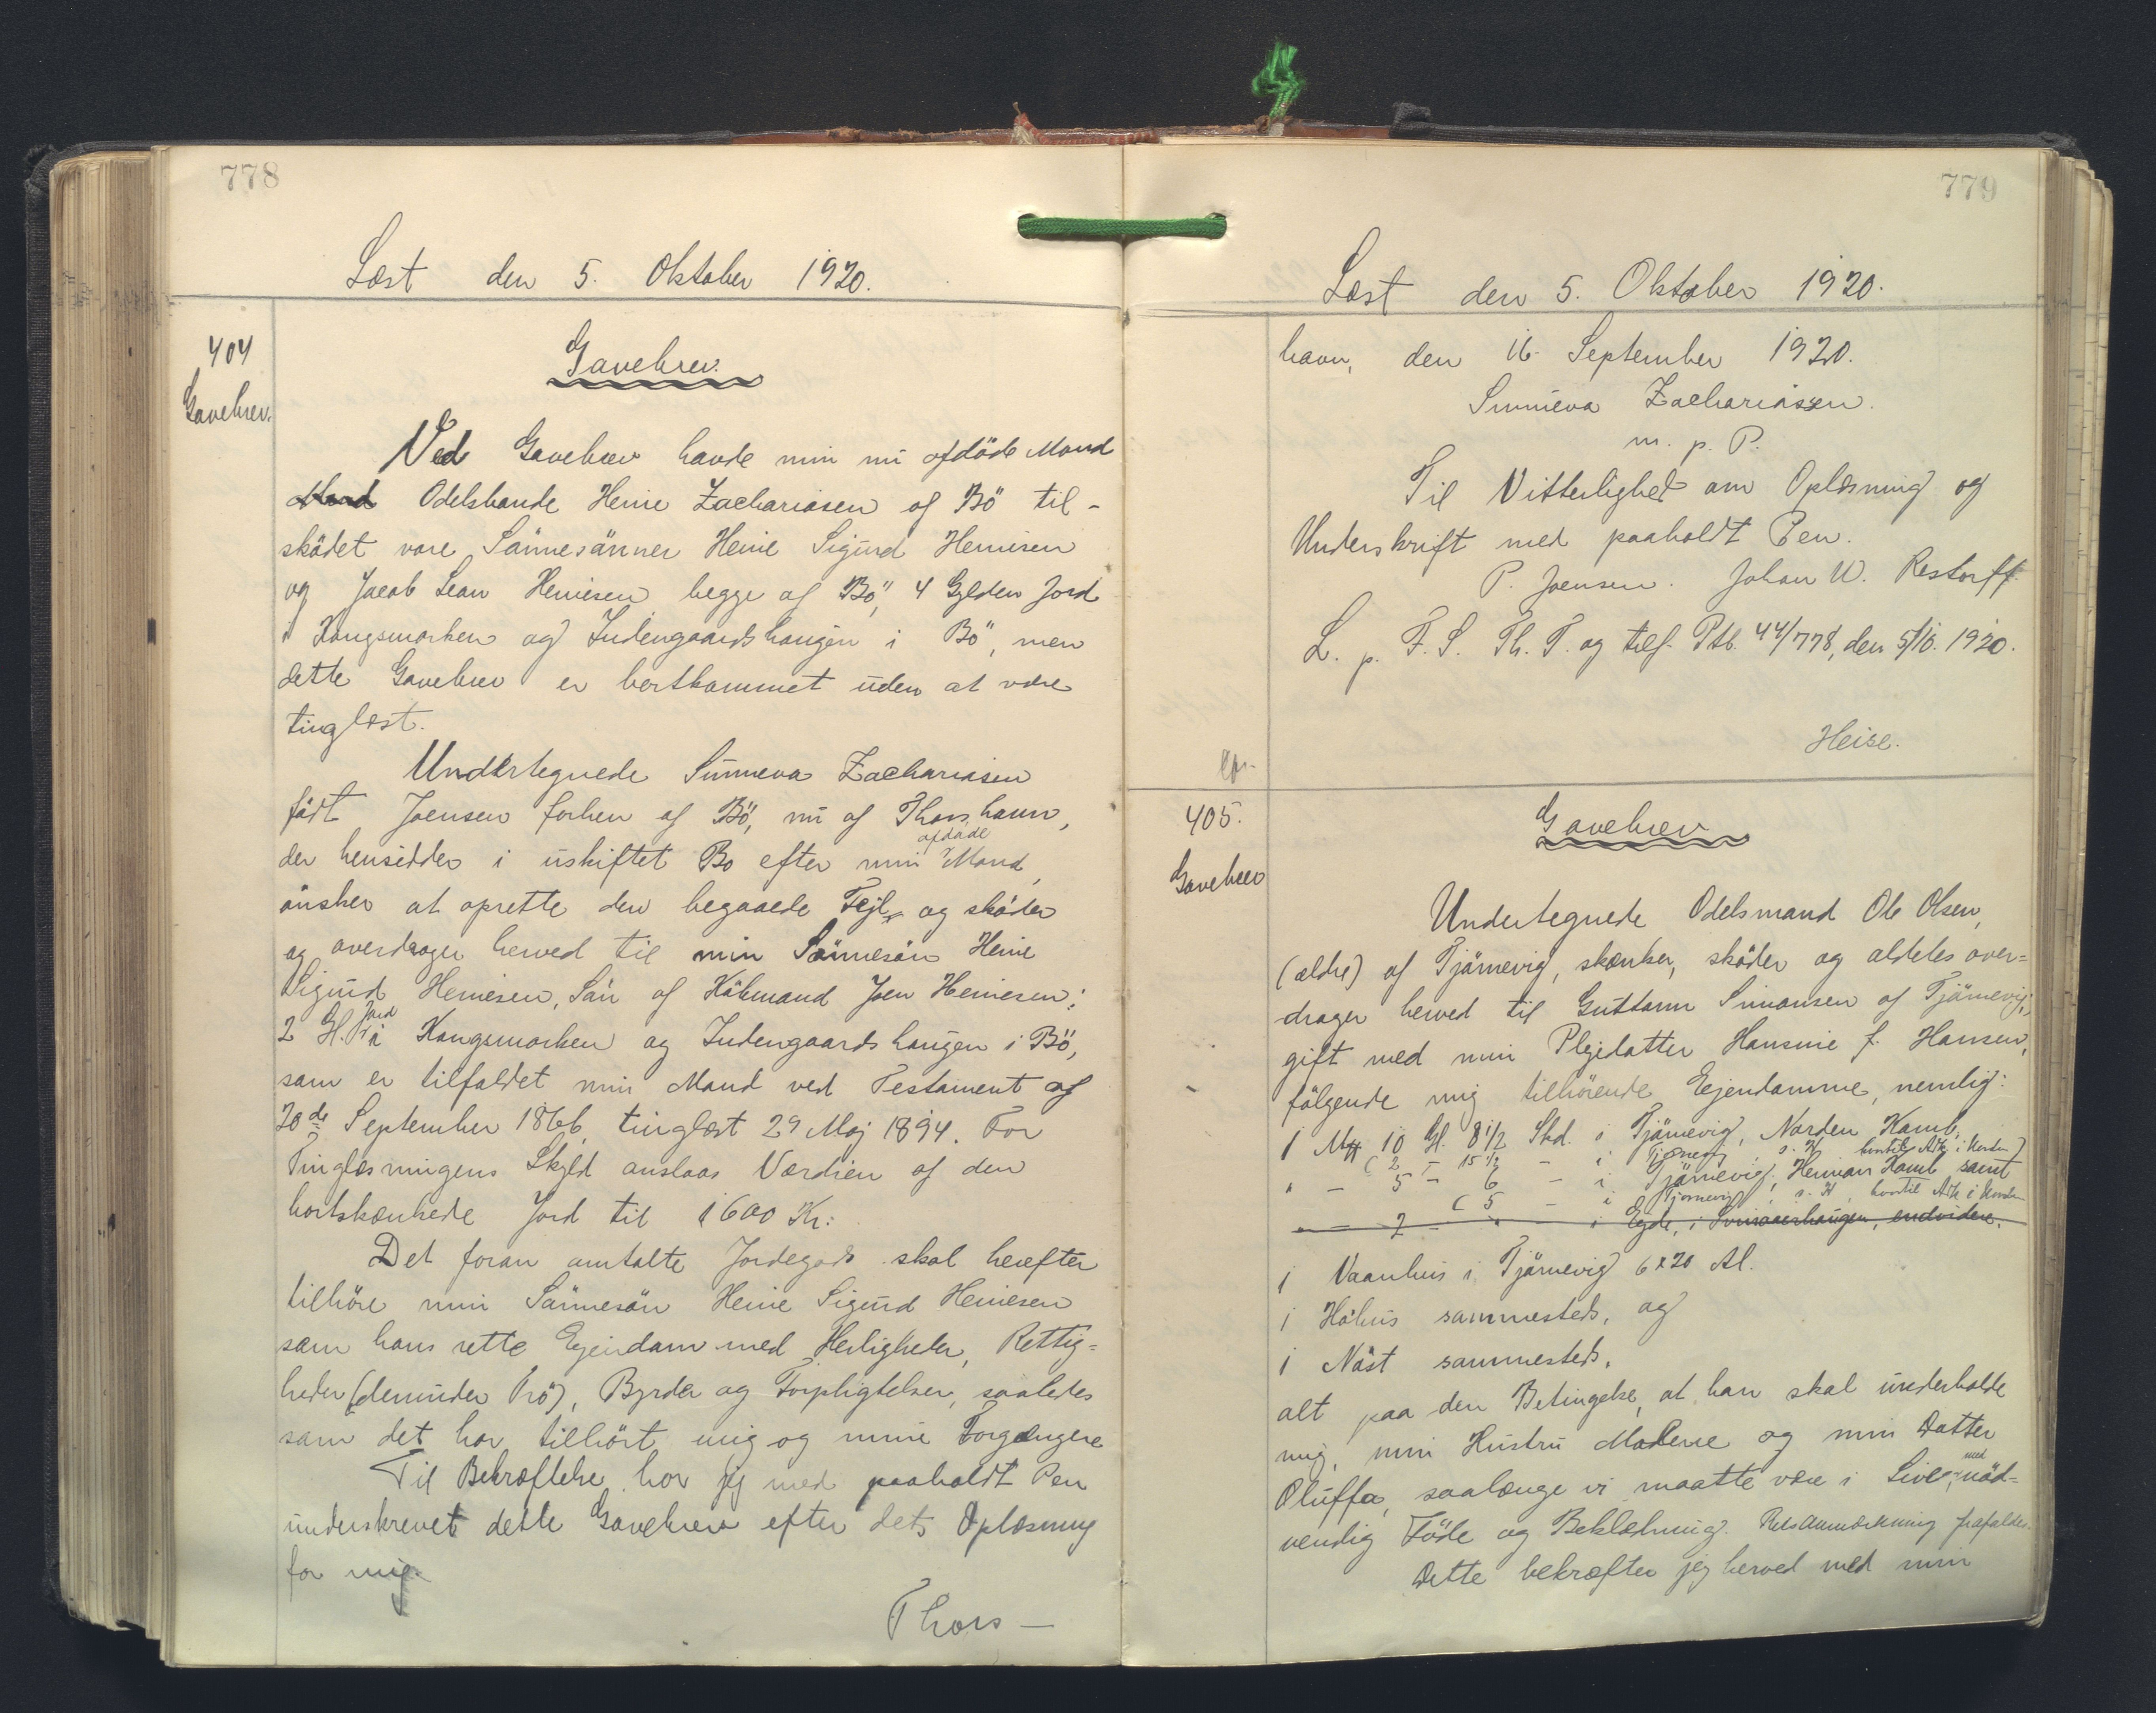 778
Læst den 5. Oktober 1920.
404
Gavebrev.
Gavebrev.
Ved Gavebrev havde min nu afdöde Mand
Mand Odelsbonde Heine Zachariasen af Bö til-
sködet vore Sönnesönner Heine Sigurd Heinesen
og Jacob Lean Heinesen begge af "Bö", 4 Gylden Jord
i Kongsmorken og Indengaardshaugen i "Bö", men
dette Gavebrev er bortkommet uden at være
tinglæst.
Undertegnede Sunneva Zachariasen
födt Joensen forhen af Bö, nu af Thorshavn,
der hensidder i uskiftet Bo efter min afdöde Mand,
önsker at oprette den begaaede Fejl, og sköder
og overdrager herved til min Sönnesön Heine
Sigurd Heinesen, Sön af Köbmand Joen Heinesen:
2 Gl. Jord i Kongsmorken og Indengaardshaugen i Bö,
som er tilfaldet min Mand ved Testament af
20de September 1866, tinglæst 29 Maj 1894. For
Tinglæsningens Skyld anslaas Værdien af den
bortskænkede Jord til 1600 Kr:
Det foran omtalte Jordegods skal herefter
tilhöre min Sönnesön Heine Sigurd Heinesen
som hans rette Ejendom med Herligheder, Rettig=
heder (derunder Trö), Byrder og Forpligtelser, saaledes
som det har tilhört mig og mine Forgængere
Til Bekræftelse har jeg med paaholdt Pen
underskrevet dette Gavebrev efter dets Oplæsning
for mig.
Thors-
779
Læst den 5. Oktober 1920.
havn, den 16. September 1920.
Sunneva Zachariassen.
m. p. P.
Til Vitterlighed om Oplæsning og
Underskrift med paaholdt Pen.
P. Joensen. Johan W. Restorff.
L. p. F. S. Th. T. og tilf. Ptb. 44/778, den 5/10. 1920.
Heise.
405.
Gavebrev
Gavebrev
Undertegnede Odelsmand Ole Olsen,
(ældre) af Tjörnevig, skænker, sköder og aldeles over=
drager herved til Guttorm Simonsen af Tjörnevig,
gift med min Plejedatter Hansine f. Hansen,
fölgende mig tilhörende Ejendomme, nemlig:
1 Mk 10 Gl. 8 1/2 Skd. i Tjörnevig, Norden Kamb,
( 2 - 15 1/2 - i Tjörnevig s. H. hvortil Atk. i Norden)
" - 5 - 6 - i Tjörnevig, Heiman Kamb samt
( 5 - i Tjörnevig, s. H, hvortil Atk i Norden
" - 2 - " - i Ejde, i Svinaaerhaugen, endvidere.
1 Vaanhus i Tjörnevig 6x20 Al.
1 Höhus sammesteds, og
1 Nöst sammesteds,
alt paa den Betingelse, at han skal underholde
mig, min Hustru Malene og min Datter
Oluffa, saalænge vi maatte være i Live, med nöd=
vendig Föde og Beklædning. Retsanmærkning frafaldes.
Dette bekræfter jeg herved med min